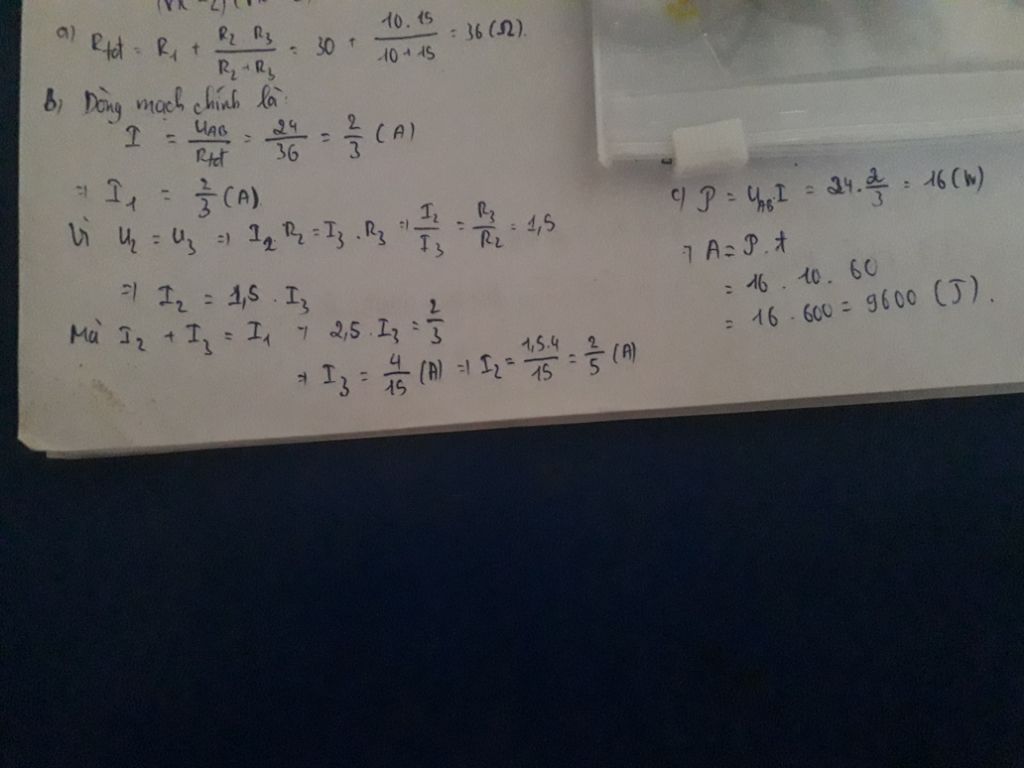 a) Rtđ = R1 + R2 R3 / (R2 + R3) = 30 + 10.15 / (10+15) = 36 (Ω).
b) Dòng mạch chính là:
I = UAB / Rtđ = 24/36 = 2/3 (A)
=> I1 = 2/3 (A).
Vì U2 = U3 => I2 R2 = I3 . R3 => I2/I3 = R3/R2 = 1,5
=> I2 = 1,5 . I3
Mà I2 + I3 = I1 => 2,5 . I3 = 2/3
=> I3 = 4/15 (A) => I2 = 1,5.4/15 = 2/5 (A)
c) P = UAB.I = 24. 2/3 = 16 (W)
=> A = P. t
= 16 . 10. 60
= 16 . 600 = 9600 (J).